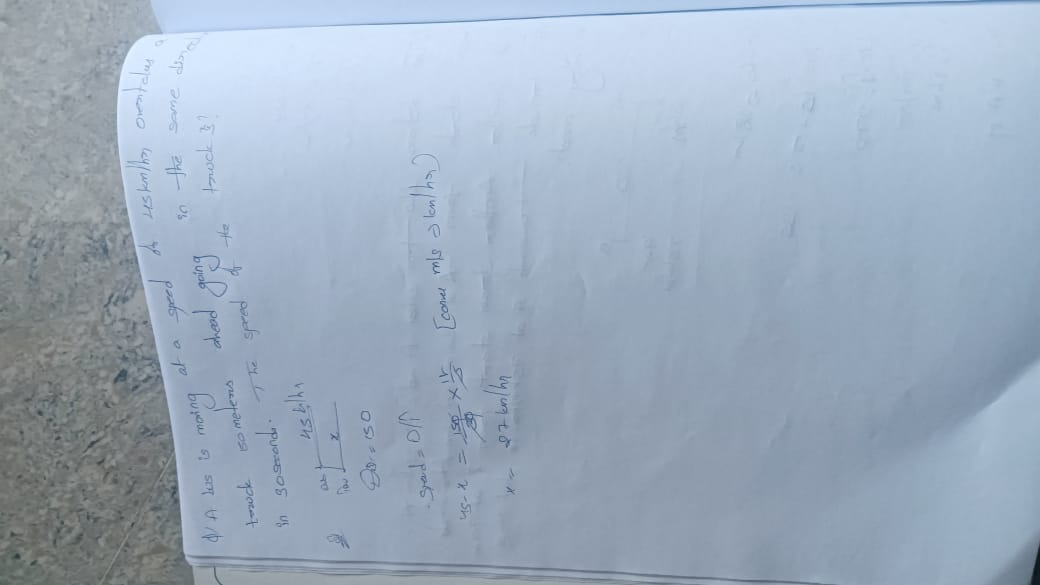 Q/ A bus is moving at a speed of 45km/hr overtakes a
truck 150meters ahead going in the same direc
in 30seconds. The speed of the truck is?
45k/hr
x
D = 150
Speed = D/T
45-x = 150/30 x 18/5 [conve m/s → km/hr]
x = 27km/hr